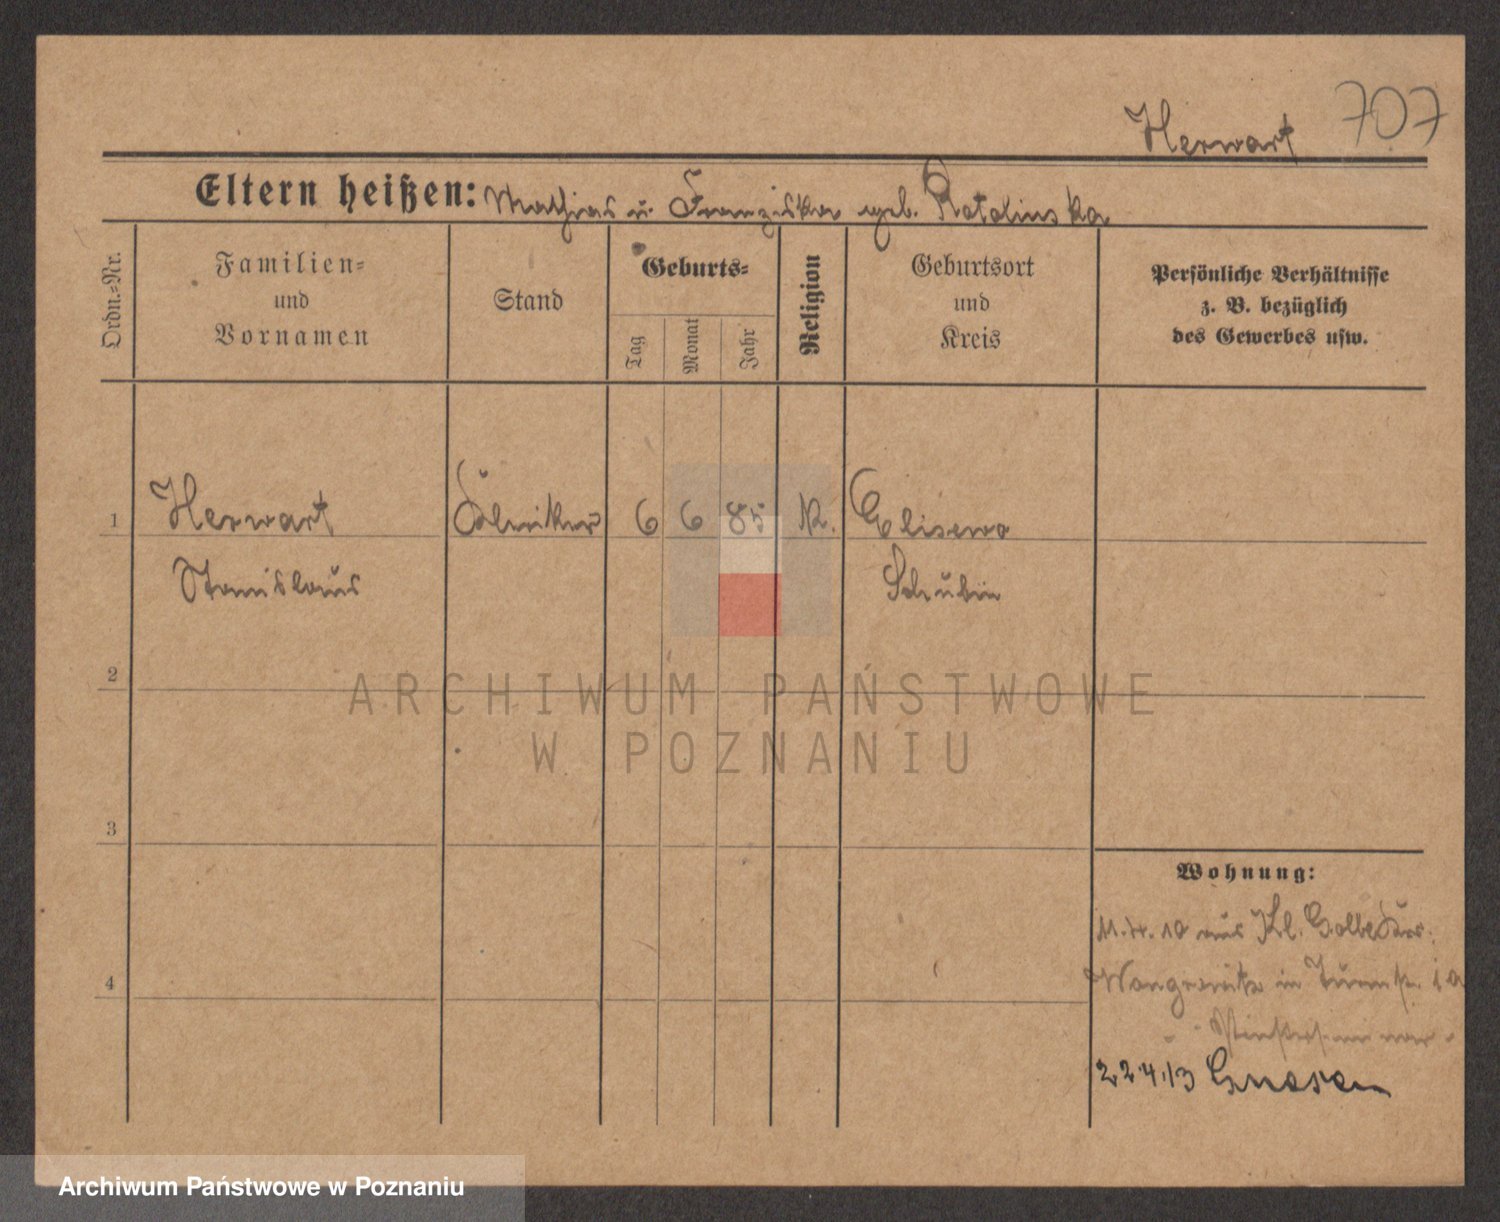 707
Herwart
Eltern heißen: Mathias u. Franziska geb. Ratalinska
Ordn.=Nr.
Familien=
und
Vornamen
Stand
Geburts=
Tag
Monat
Jahr
Religion
Geburtsort
und
Kreis
Persönliche Verhältnisse
z. B. bezüglich
des Gewerbes usw.
1 Herwart Kleriker 6 6 85 K. Elisewo
Stanislaus Schubin
2
ARCHIWUM PAŃSTWOWE
W POZNANIU
3
Wohnung:
aus Kl. Golle Krs.
4
Wongrowitz in Turmstr.
22.4.13 Gnesen
Archiwum Państwowe w Poznaniu